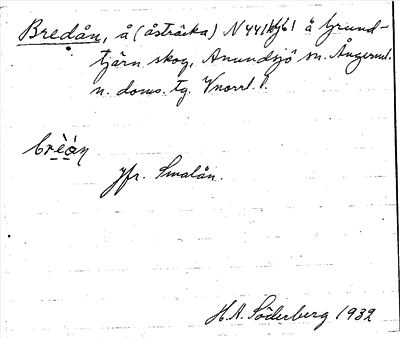 Bredån, å (åsträcka) N 441 å Grund-
tjärn skog, Anundsjö sn. Ångerml.
n. doms. tg. Vnorrl. l.
brèàn
Jfr. Smalån.
H.A. Söderberg 1932